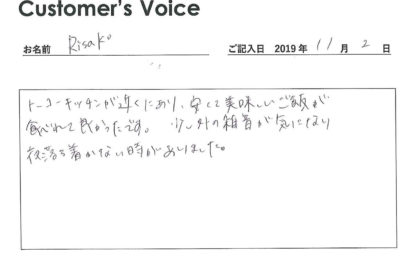 Customer's Voice
お名前 Risako ご記入日 2019年 11 月 2 日
トーコーキッチンが近くにあり、安くて美味しいご飯が
食べれて良かったです。 少し外の雑音が気になり
夜落ち着かない時がありました。